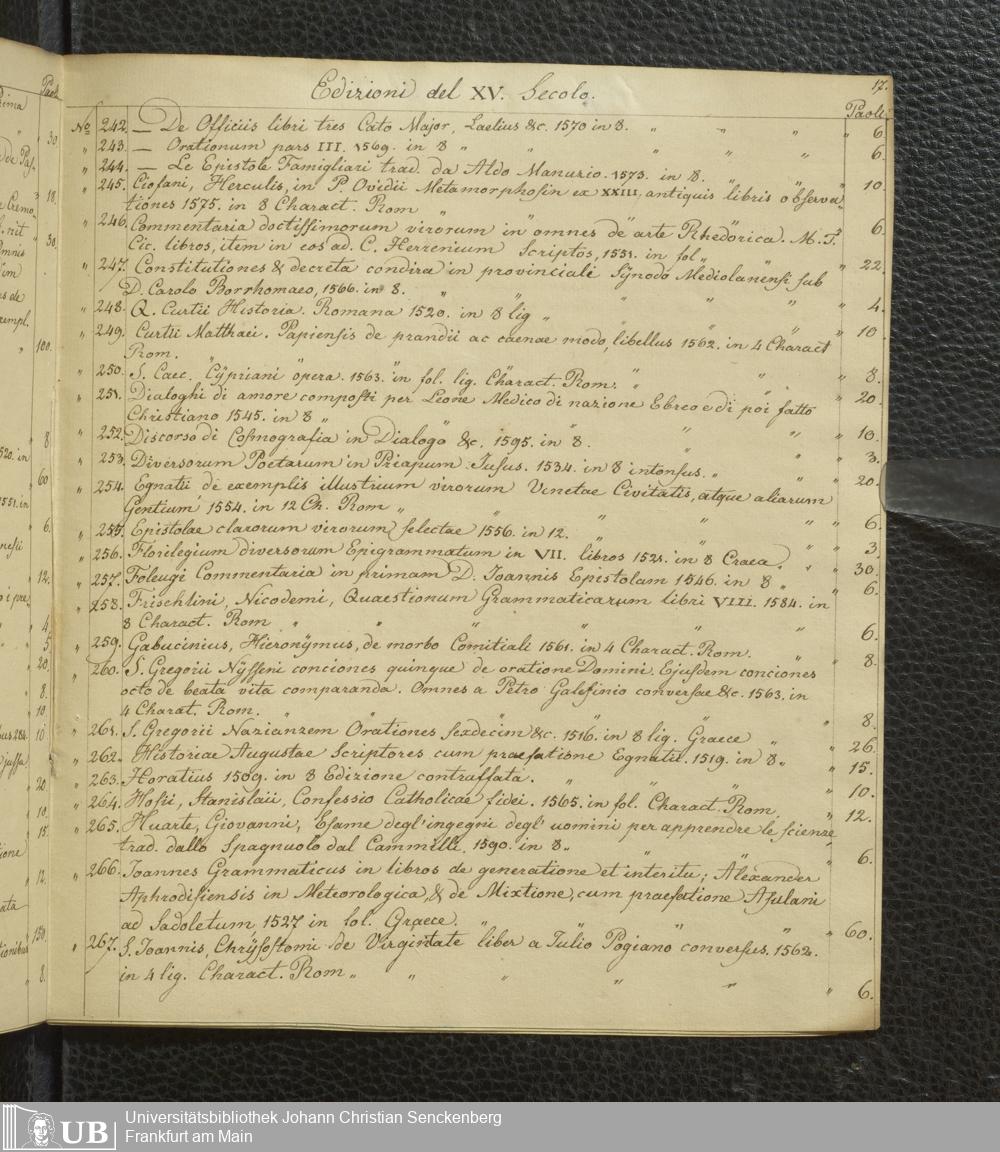 Edizioni del XV. Secolo.
17.
Paoli
No 242. — De Officiis libri tres Cato Major, Laelius &c. 1570 in 8. " " " " 6.
" 243. — Orationum pars III. 1569. in 8 " " " " " " 6.
" 244. — Le Epistole Famigliari trad. da Aldo Manuzio. 1573. in 8. " " 10.
" 245. Ciofani, Herculis, in P. Ovidii Metamorphosin ex XXIII, antiquis libris observa-
tiones 1575. in 8 Charact. Rom " " " " 6.
" 246. Commentaria doctissimorum virorum in omnes de arte Rhedorica. M. T.
Cic. libros, item in eos ad. C. Herrenium Scriptos, 1531. in fol " " 22.
" 247. Constitutiones & decreta condira in provinciali Synodo Mediolanensi sub
D. Carolo Borrhomaeo, 1566. in 8. " " " " " 4.
" 248. Q. Curtii Historia. Romana 1520. in 8 lig " " " " 10
" 249. Curtii Matthaei. Papiensis de prandii ac caenae modo, libellus 1562. in 4 Charact
Rom. " " " " " " 8.
" 250. S. Caec. Cypriani opera. 1563. in fol. lig. Charact. Rom. " " " 20.
" 251. Dialoghi di amore composti per Leone Medico di nazione Ebreo e di poi fatto
Christiano 1545. in 8 " " " " " 10.
" 252. Discorso di Cosmografia in Dialogo &c. 1595. in 8. " " 3.
" 253. Diversorum Poetarum in Priapum Jusus. 1534. in 8 intonsus. " " 20.
" 254. Egnatii de exemplis illustrium virorum Venetae Civitatis, atque aliarum
Gentium 1554. in 12 Ch. Rom " " " " " 6.
" 255. Epistolae clarorum virorum selectae 1556. in 12. " " " 3.
" 256. Florilegium diversorum Epigrammatum in VII. libros 1521. in 8 Craea. " " 30.
" 257. Foleugi Commentaria in primam D. Joannis Epistolam 1546. in 8 " " 6.
" 258. Frischlini, Nicodemi, Quaestionum Grammaticarum libri VIII. 1584. in
8 Charact. Rom " " " " " 6.
" 259. Gabucinius, Hieronymus, de morbo Comitiali 1561. in 4 Charact. Rom. " 8.
" 260. S. Gregorii Nysseni conciones quinque de oratione Domini. Ejusdem conciones
octo de beata vita comparanda. Omnes a Petro Galesinio conversae &c. 1563. in
4 Charat. Rom. " " " " " 8.
" 261. S. Gregorii Nazianzem Orationes sexdecim &c. 1516. in 8 lig. Graece " " 26.
" 262. Historiae Augustae Scriptores cum praefatione Egnatii. 1519. in 8. " " 15.
" 263. Horatius 1509. in 8 Edizione contraffata. " " " 10.
" 264. Hosii, Stanislaii, Confessio Catholicae fidei. 1565. in fol. Charact. Rom. " 12.
" 265. Huarte, Giovanni, Esame degl'ingegni degl' uomini per apprendre le scienze
trad. dallo Spagnuolo dal Cammilli. 1590. in 8. " " " 6.
" 266. Joannes Grammaticus in libros de generatione et interitu; Alexander
Aphrodisiensis in Meteorologica, & de Mixtione, cum praefatione Asulani
ad Sadoletum, 1527 in fol. Graece. " " " " 60.
" 267. S. Joannis, Chrysostomi de Virginitate liber a Julio Pogiano conversus. 1562.
in 4 lig. Charact. Rom " " " " " 6.
Paoli
30.
18.
30.
100.
8
60
6.
12.
4
5.
20.
8.
10
10
20.
10.
15.
12.
150.
8.
UB
Universitätsbibliothek Johann Christian Senckenberg
Frankfurt am Main